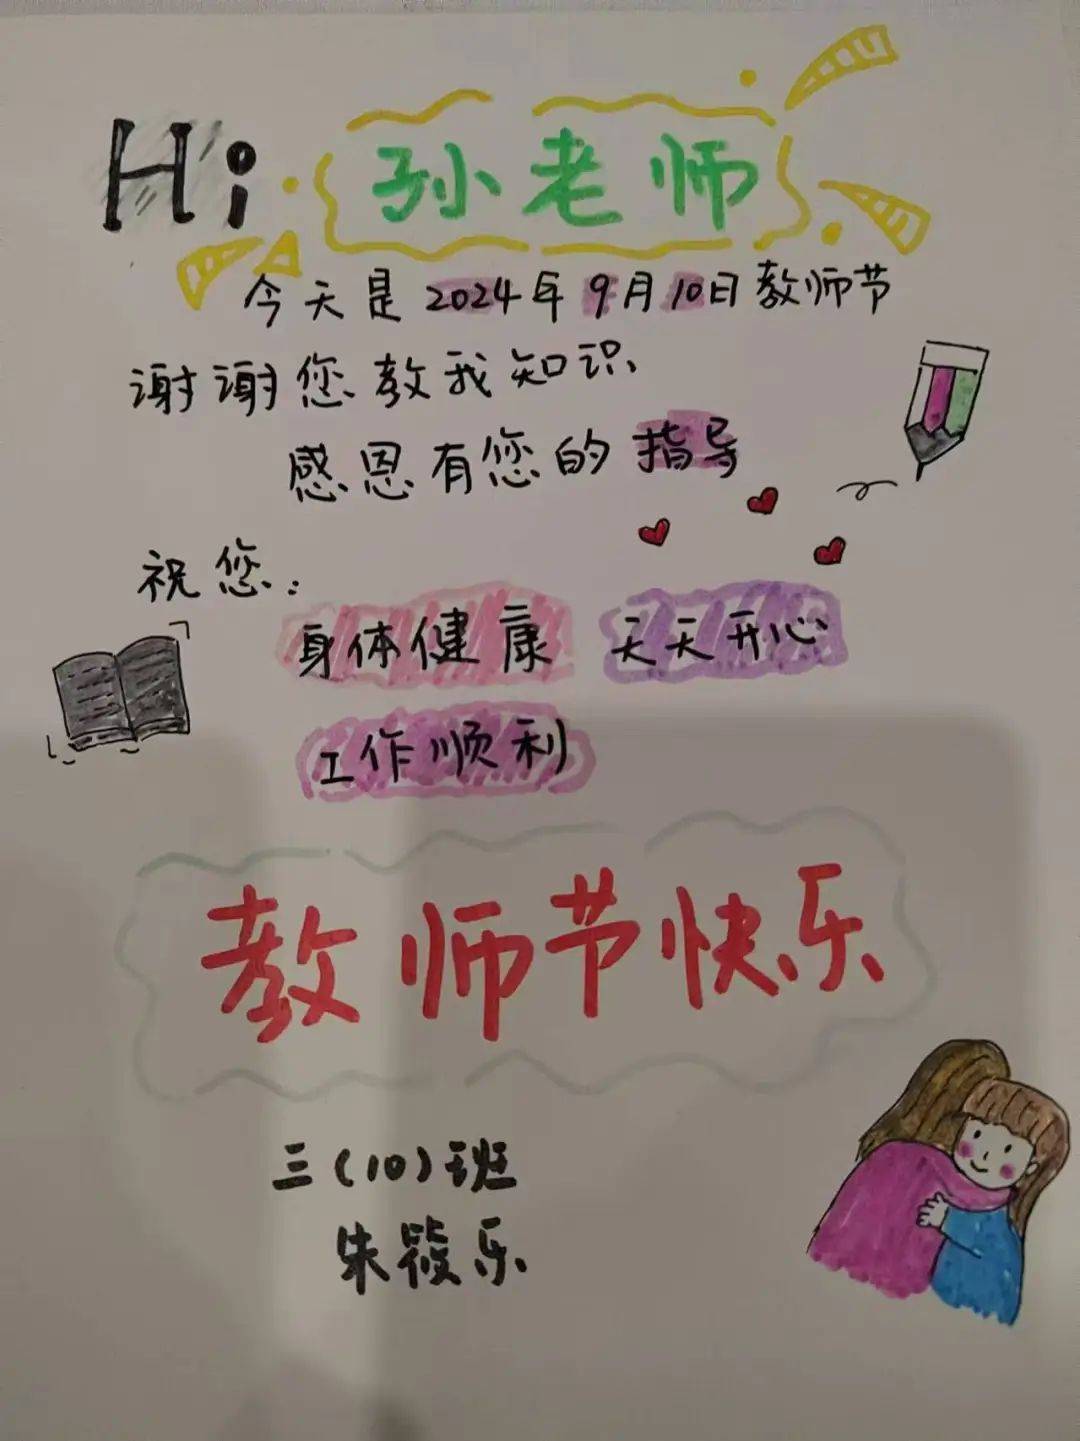 Hi 孙老师
今天是2024年9月10日教师节
谢谢您教我知识、
感恩有您的指导
祝您：
身体健康 天天开心
工作顺利
教师节快乐
三(10)班
朱筱乐